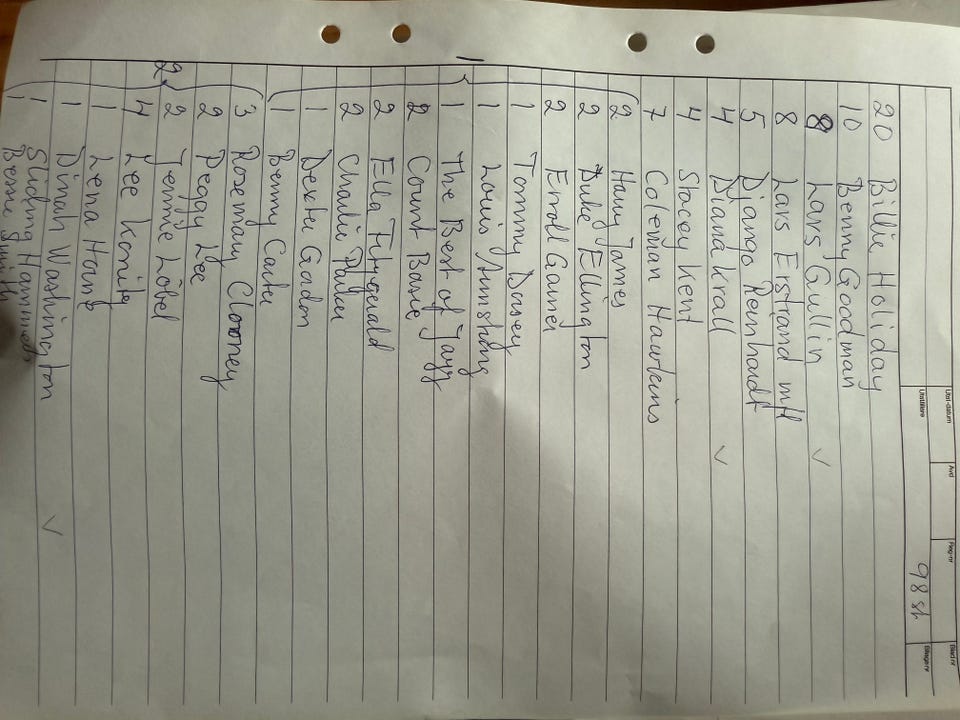 Utst-datum
Avd
Reg-nr
Blad nr
Utställare
98 st
Bilaga-nr
20 Billie Holiday
10 Benny Goodman
8 Lars Gullin ✓
8 Lars Erstrand mfl
5 Django Reinhardt
4 Diana Krall ✓
4 Stacey Kent
7 Coleman Hawkins
2 Harry James
2 Duke Ellington
2 Erroll Garner
1 Tommy Dorsey
1 Louis Armstrong
1 The Best of Jazz
2 Count Basie
2 Ella Fitzgerald
2 Charlie Parker
1 Dexter Gordon
1 Benny Carter
3 Rosemary Clooney
2 Peggy Lee
2 Jennie Löbel
4 Lee Konitz
1 Lena Horne
1 Dinah Washington
1 Sliding Hammers ✓
1 Bessie Smith